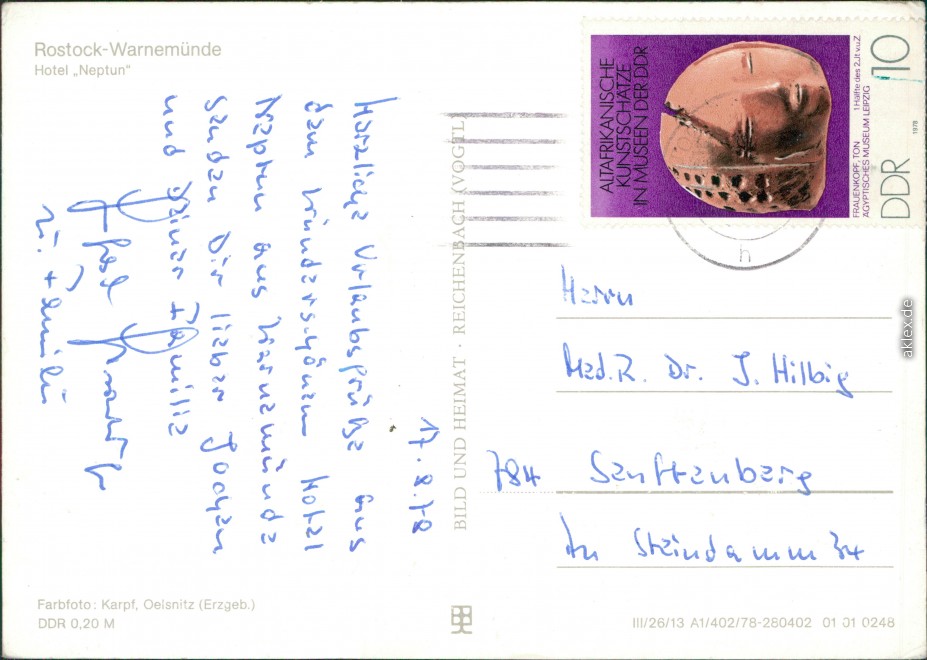 Rostock-Warnemünde
Hotel „Neptun"
17.8.78
Herzliche Urlaubsgrüße aus
dem wunderschönen Hotel
Neptun aus Warnemünde
senden Dir lieber Jochen
und Deiner Familie
u. Familie
Farbfoto: Karpf, Oelsnitz (Erzgeb.)
DDR 0,20 M
BILD UND HEIMAT · REICHENBACH (VOGTL
ALTAFRIKANISCHE
KUNSTSCHÄTZE
IN MUSEEN DER DDR
FRAUENKOPF, TON
1. Hälfte des 2. Jt. v. u. Z.
ÄGYPTISCHES MUSEUM LEIPZIG
1978
DDR 10
h
Herrn
Med.R. Dr. J. Hilbig
784 Senftenberg
Am Steindamm 34
III/26/13 A1/402/78-280402 01 01 0248
aklex.de